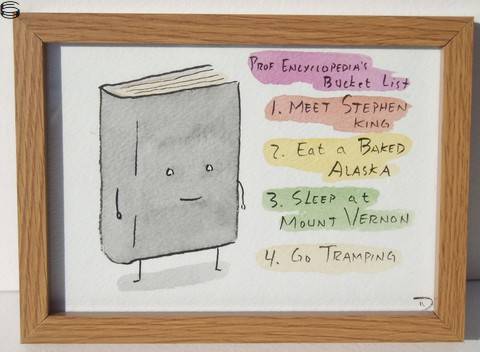 Prof Encyclopedia's
Bucket List
1. Meet Stephen
King
2. Eat a Baked
Alaska
3. Sleep at
Mount Vernon
4. Go Tramping